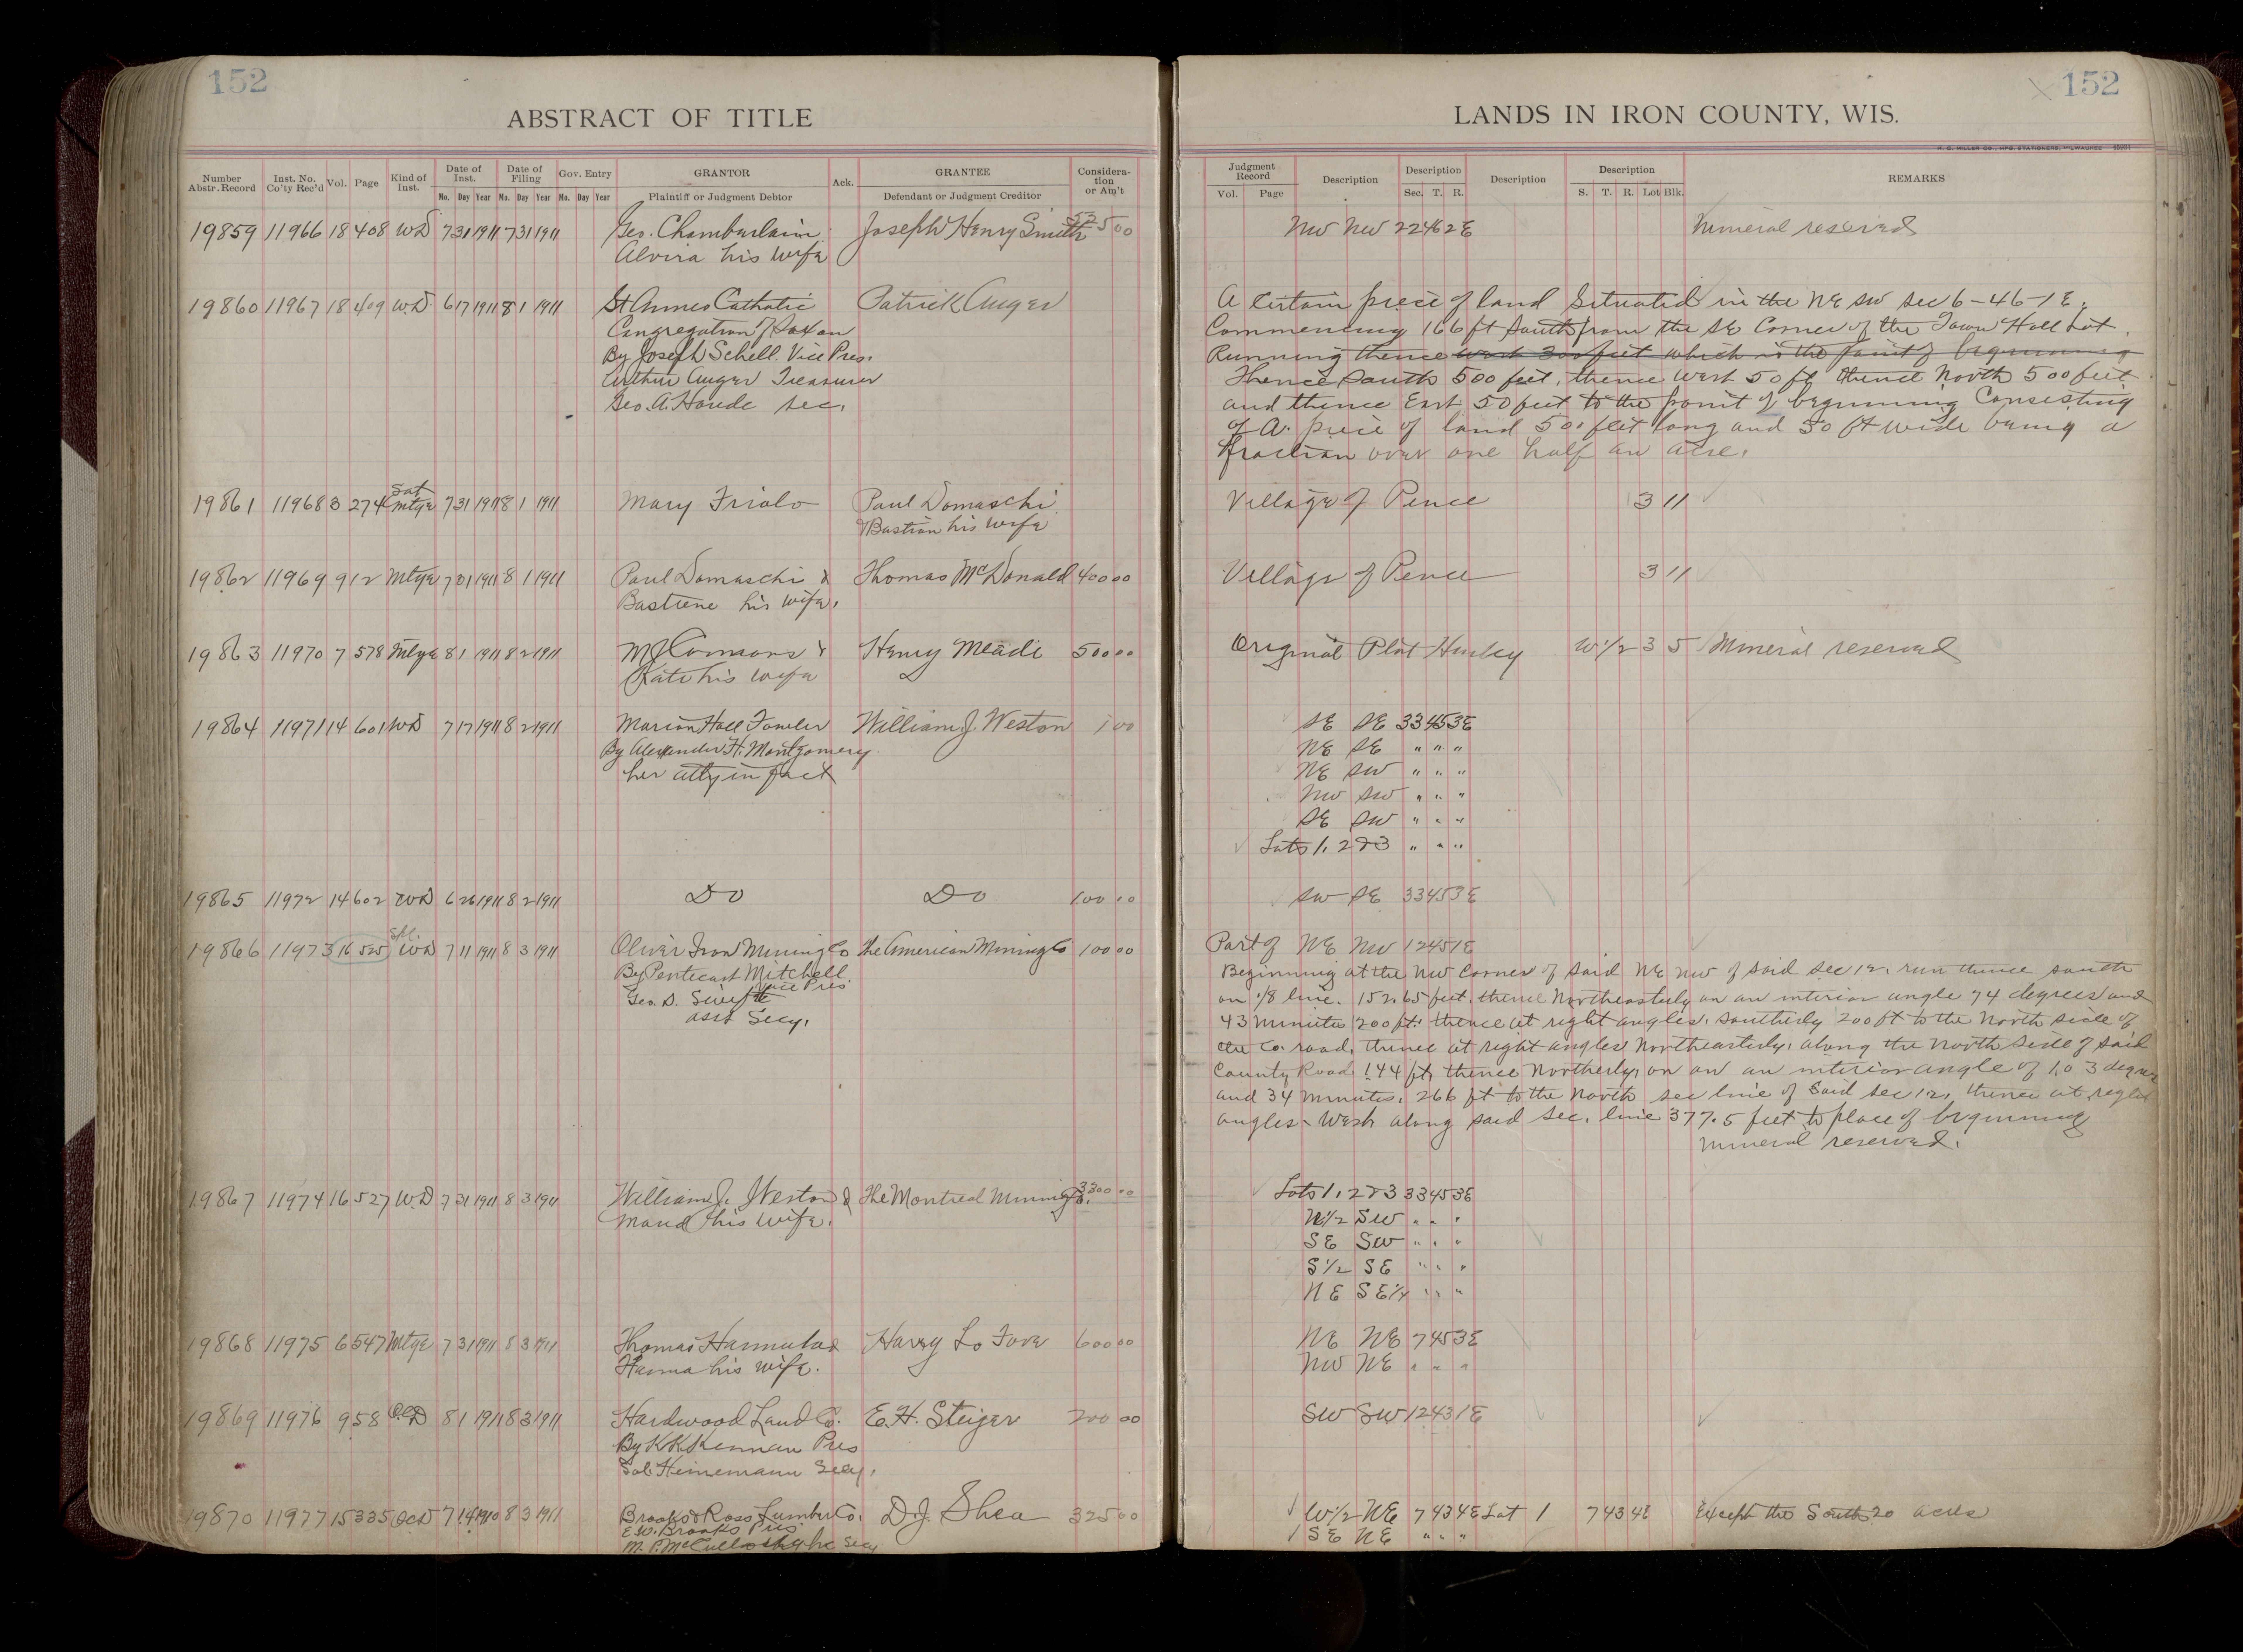 152
ABSTRACT OF TITLE
Number Abstr. Record Inst. No. Co'ty Rec'd Vol. Page Kind of Inst. Date of Inst. Date of Filing Gov. Entry GRANTOR Ack. GRANTEE Consideration or Am't
Mo. Day Year Mo. Day Year Mo. Day Year Plaintiff or Judgment Debtor Defendant or Judgment Creditor
19859 11966 18 408 WD 7 31 1911 7 31 1911 Geo. Chamberlain Joseph Henry Smith 525 00
Alvira his wife
19860 11967 18 409 W.D. 6 17 1911 8 1 1911 St Annes Catholic Patrick Auger
Congregation of Saxon
By Joseph Schell. Vice Pres.
Arthur Auger Treasurer
Geo. A. Houde Sec.
19861 11968 3 274 Sat Mtge 7 31 1911 8 1 1911 Mary Triolo Paul Domaschi
& Bastian his wife
19862 11969 9 12 Mtge 7 31 1911 8 1 1911 Paul Domaschi & Thomas McDonald 400 00
Bastiene his wife.
19863 11970 7 578 Mtge 8 1 1911 8 2 1911 M J Connors & Henry Meade 500 00
Kate his wife
19864 11971 14 601 WD 7 17 1911 8 2 1911 Marion Hall Fowler William J. Weston 1 00
By Alexander H. Montgomery
her atty in fact
19865 11972 14 602 WD 6 26 1911 8 2 1911 Do Do 100 00
19866 11973 16 525 Spl. WD 7 11 1911 8 3 1911 Oliver Iron Mining Co The American Mining Co 100 00
By Pentecost Mitchell
Vice Pres.
Geo. D. Swift
asst Secy.
19867 11974 16 527 W.D 7 31 1911 8 3 1911 William J. Weston & The Montreal Mining Co. 3300 00
Maud his wife.
19868 11975 6 547 Mtge 7 31 1911 8 3 1911 Thomas Hannula & Harry Lo Fave 600 00
Hanna his wife.
19869 11976 9 58 8 1 1911 8 3 1911 Hardwood Land Co. E. H. Steiger 200 00
By K K Kennan Pres
Sol. Heinemann Secy.
19870 11977 15 335 7 14 1910 8 3 1911 Brooks & Ross Lumber Co. D. J. Shea 325 00
E. W. Brooks Pres.
M. P. McCullough Secy
152
LANDS IN IRON COUNTY, WIS.
H. C. MILLER CO., MFG. STATIONERS, MILWAUKEE
Judgment Record Description Description Description Description REMARKS
Vol. Page Sec. T. R. S. T. R. Lot Blk.
NW NW 22 46 2E Mineral reserved
A Certain piece of land Situated in the NE SW Sec 6-46-1E.
Commencing 166 ft South from the SE Corner of the Town Hall Lot.
Running thence west 300 feet which is the point of beginning
Thence South 500 feet, thence West 50 ft thence North 500 feet
and thence East 50 feet to the point of beginning Consisting
of A. piece of land 500 feet long and 50 ft wide being a
fraction over one half an acre.
Village of Pence 3 11
Village of Pence 3 11
Original Plat Hurley W 1/2 3 5 Mineral reserved
SE SE 33 45 3E
NE SE " " "
NE SW " " "
NW SW " " "
SE SW " " "
Lots 1, 2 & 3 " " "
SW SE 33 45 3E
Part of NE NW 12 45 1E
Beginning at the NW Corner of said NE NW of said sec 12, run thence south
on 1/8 line. 152.65 feet, thence Northeasterly on an interior angle 74 degrees and
43 minutes 200 ft. thence at right angles, southerly 200 ft to the North side of
the Co. road, thence at right angles Northeasterly, along the North side of said
County Road 144 ft, thence Northerly, on an an interior angle of 103 degrees
and 34 minutes, 266 ft to the North sec line of Said sec 12, thence at right
angles, West along said sec. line 377.5 feet to place of beginning
Mineral reserved.
Lots 1, 2 & 3 33 45 3E
N 1/2 SW " " "
SE SW " " "
S 1/2 SE " " "
NE SE 1/4 " " "
NE NE 7 45 3E
NW NE " " "
SW SW 12 43 1E
W 1/2 NE 7 43 4E Lot 1 7 43 4E Except the South 20 acres
SE NE " " "